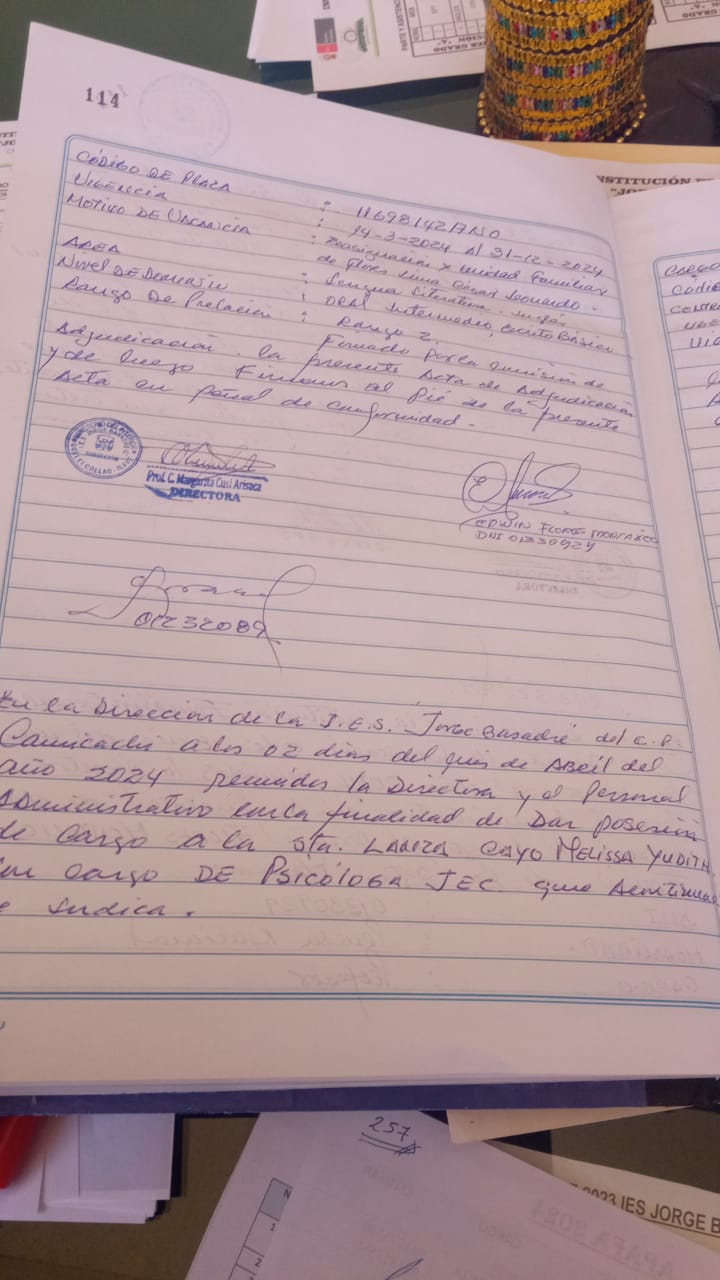 114
CÓDIGO DE PLAZA : 1169814217N0
VIGENCIA : 14-3-2024 Al 31-12-2024
MOTIVO DE VACANCIA : Reasignación x Unidad Familiar
de Flores Lima César Leonardo.
AREA : Lengua Literatura - Inglés
Nivel DE Dominio : ORAL Intermedio, escrito Básico
Rango De Prelación : Rango 2.
Firmado por la comisión de
Adjudicación. la presente Acta de Adjudicación
y de luego Firmaron al Pié de la presente
Acta en señal de conformidad.
Prof. C. Margarita Cusi Arisaca
DIRECTORA
EDWIN FLORES
DNI 01330924
01232089
En la Dirección de la I.E.S. Jorge Basadre del C.P.
Camicachi a los 02 dias del mes de Abril del
año 2024 reunidos la Directora y el Personal
Administrativo con la finalidad de Dar posesión
de cargo a la Sta. LARIZA CAYO MELISSA YUDITH
en cargo DE PSICÓLOGA JEC. que Acontinua
e indica.
INSTITUCIÓN
CARGO
257
N
1
2
2023 IES JORGE B